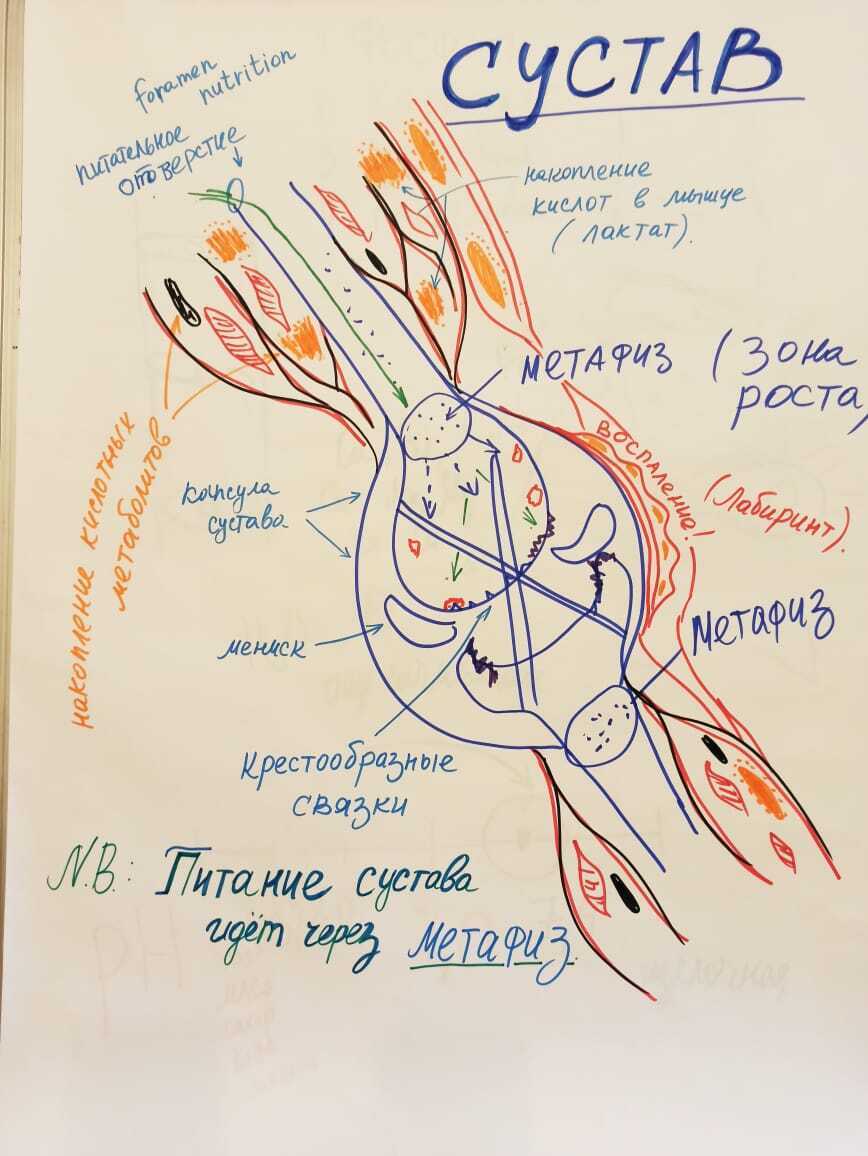 СУСТАВ
foramen
nutrition
питательное
отверстие
накопление
кислот в мышце
(лактат).
МЕТАФИЗ (ЗОНА
РОСТА)
ВОСПАЛЕНИЕ!
(Лабиринт).
накопление кислотных
метаболитов
капсула
сустава
МЕТАФИЗ
мениск
Крестообразные
связки
N.B.: Питание сустава
идёт через МЕТАФИЗ.
pH